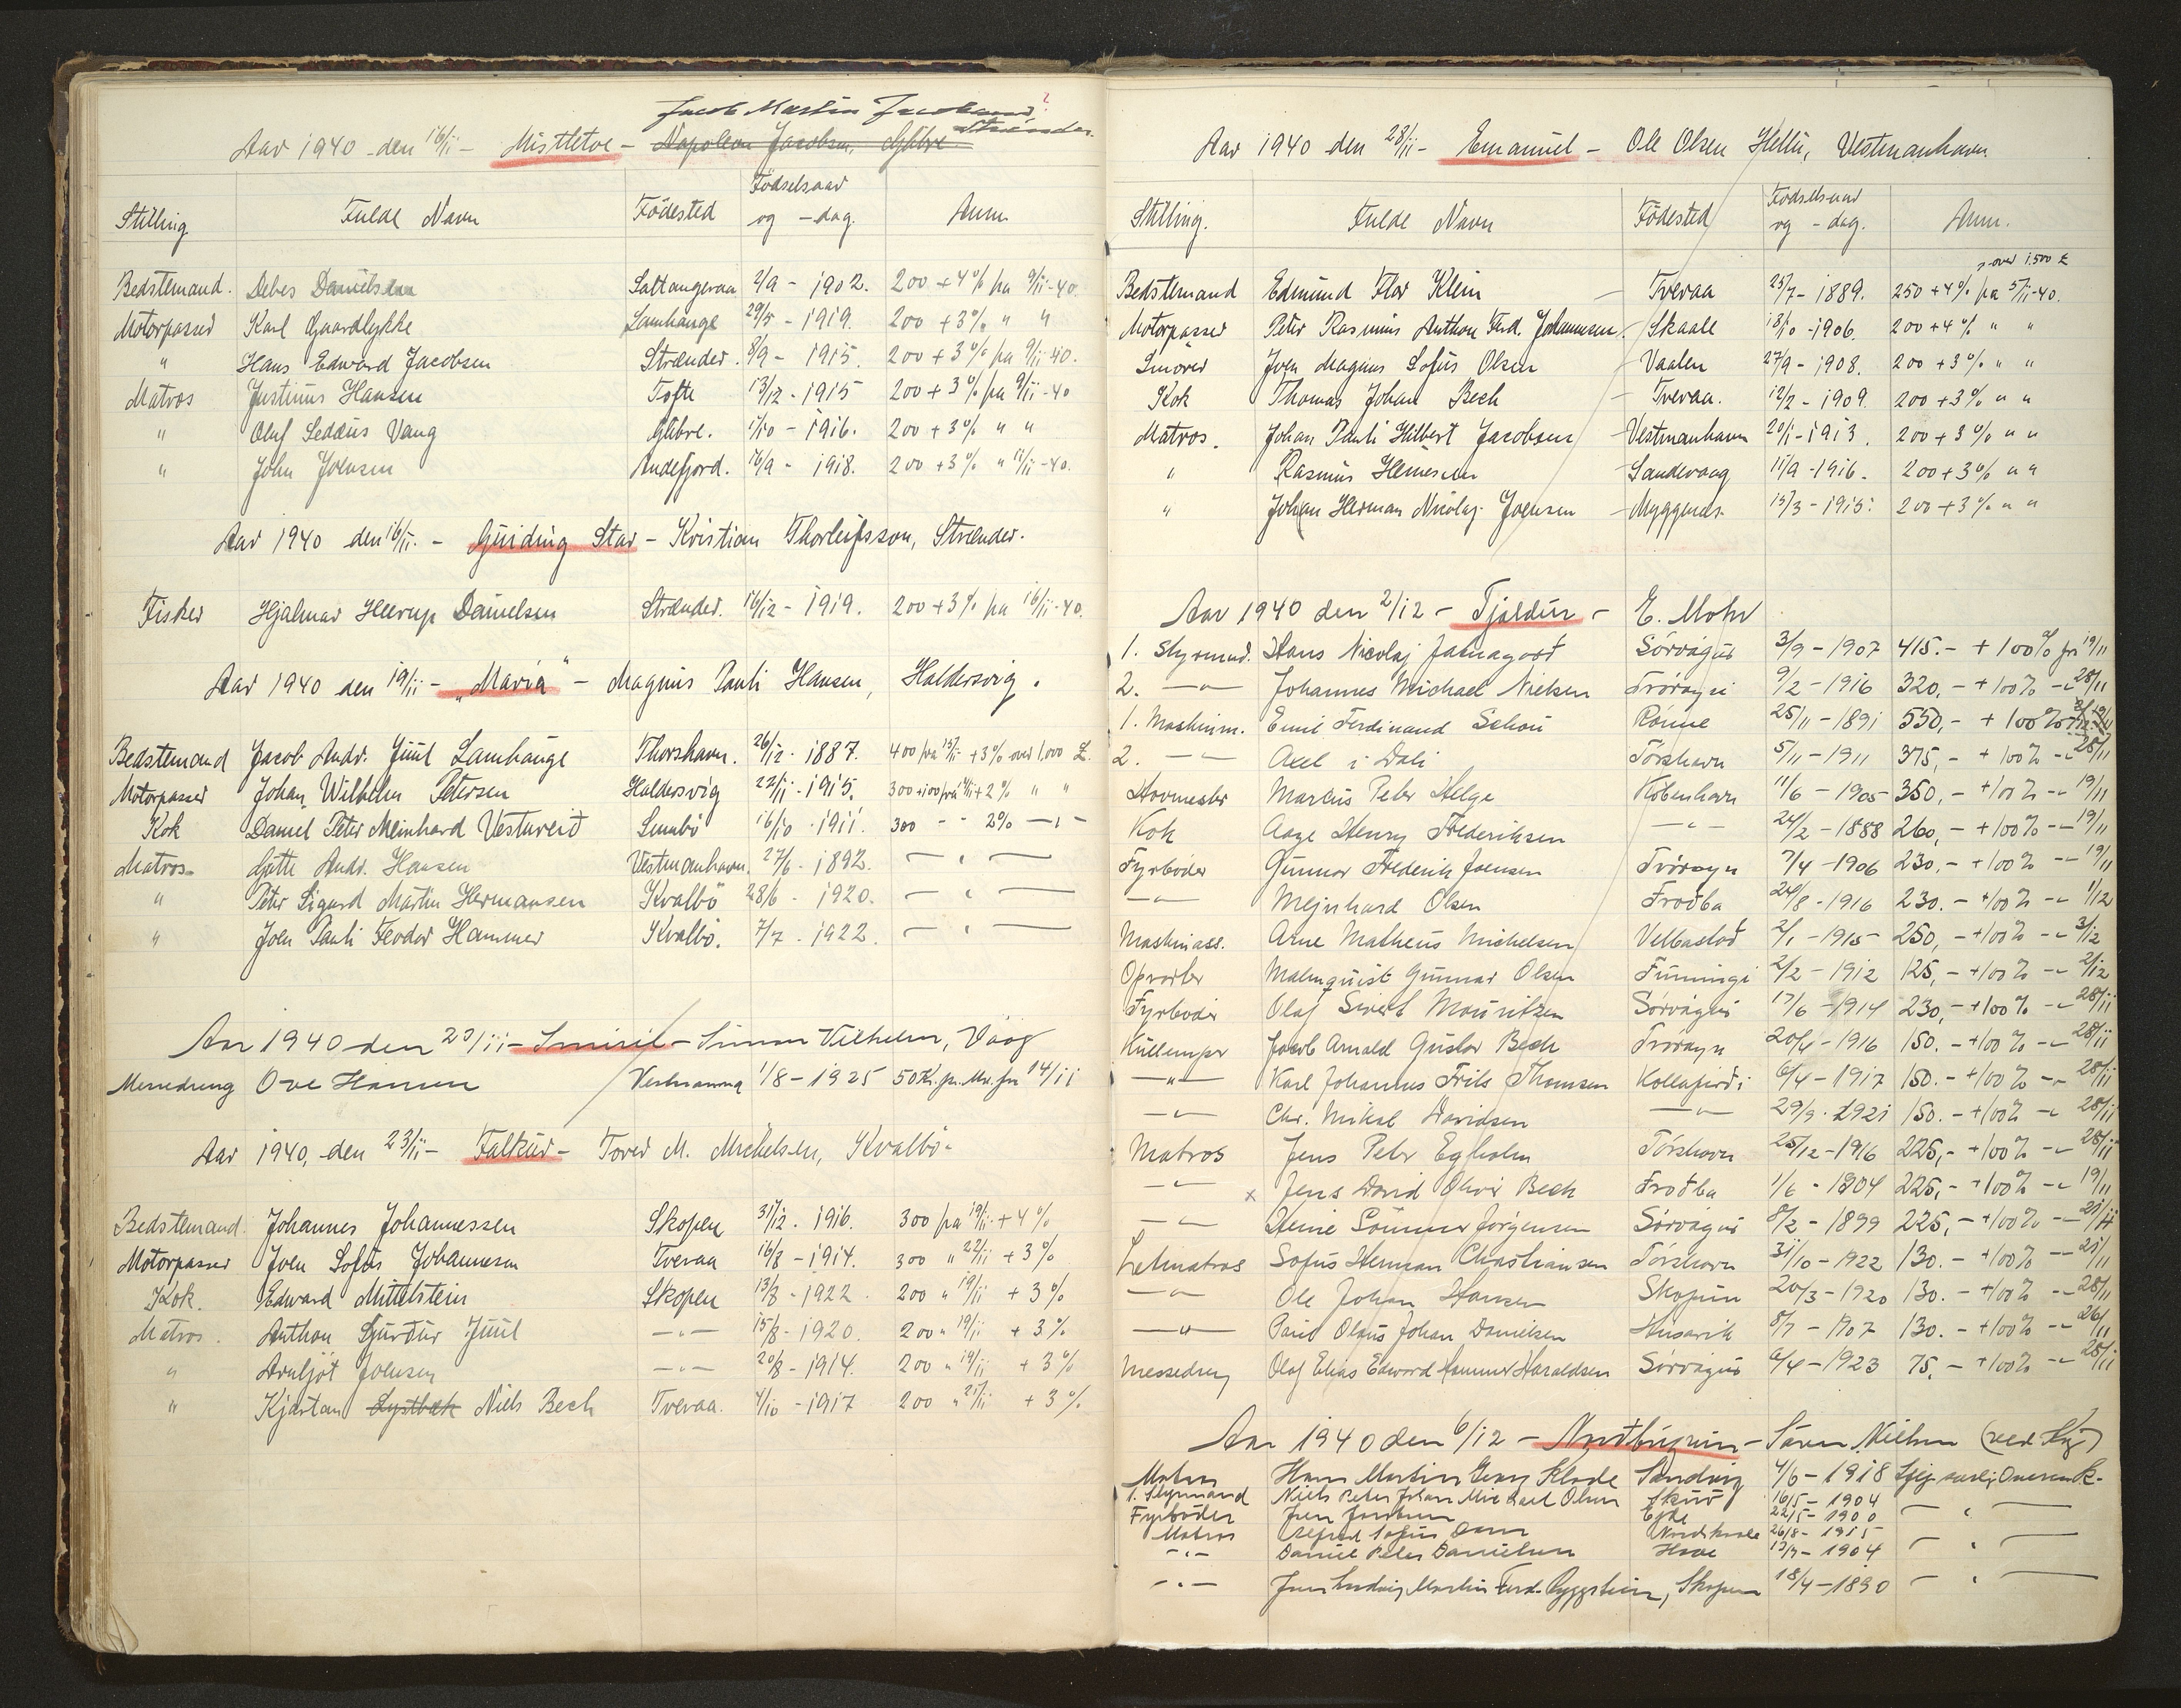 Jacob Martin Jacobsen ?
Strænder.
Aar 1940 den 16/11 - Mistletoe - Napoleon Jacobsen, Glibre
Stilling Fulde Navn Födested Födselsaar og -dag. Anm.
Bedstemand. Debes Danielsen Saltangeraa 2/9 - 1902. 200 + 4% fra 9/11-40.
Motorpasser Karl Gaardlykke Lamhauge 29/5 - 1919. 200 + 3% " "
" Hans Edward Jacobsen Strænder. 8/9 - 1915. 200 + 3% fra 9/11-40.
Matros Justinus Hansen Tofte 13/12 - 1915 200 + 3% fra 9/11-40
" Oluf Vang Glibre. 1/10 - 1916. 200 + 3% " "
" John Joensen Andefjord. 16/9 - 1918. 200 + 3% " 11/11-40.
Aar 1940 den 16/11. - Guiding Star - Kristian Thorleifsson, Strænder.
Fisker Hjalmar Heerup Danielsen Strænder. 16/12 - 1919. 200 + 3% fra 16/11-40.
Aar 1940 den 19/11 - "Maria" - Magnus Pauli Hansen, Haldersvig.
Bedstemand Jacob Andr. Juul Lamhauge Thorshavn. 26/12 - 1887. 400 fra 15/11 + 3% over 1,000 £.
Motorpasser Johan Wilhelm Petersen Haldersvig 22/11 - 1915. 300 + 100 fra + 2% " "
Kok Daniel Peter Meinhard Vestureið Sumbö 16/10 - 1911. 300 - - 2% — " —
Matros Gutte Andr. Hansen Vestmanhavn. 27/6 - 1892. — " —
" Peter Sigurd Martin Hermansen Kvalbö 28/6 - 1920. — " —
" Joen Pauli Feodor Hammer Kvalbö. 7/7 - 1922. — " —
Aar 1940 den 23/11 - Smiril - Simun Vilhelm, Vaag
Messedreng Ove Hansen Vestmanna 1/8 - 1925 50 Kr. pr. Md. fra 14/11
Aar 1940, den 23/11 - Falkur - Tored M. Michelsen, Kvalbö.
Bedstemand. Johannes Johannessen Skopen 31/12. 1916. 300 fra 19/11 + 4%
Motorpasser Joen Sofus Johannesen Tveraa 16/8 - 1914. 300 " 22/11 + 3%
Kok. Edward Mittelstein Skopen 13/8 - 1922. 200 " 19/11 + 3%
Matros. Anthon Sjurður Juul — " — 15/8 - 1920. 200 " 19/11 + 3%
" Arnljót Joensen — " — 20/8 - 1914. 200 " 19/11 + 3%
" Kjartan Lystbæk Niels Bech Tveraa. 4/10 - 1917 200 " 21/11 + 3%
Aar 1940 den 28/11 - Emanuel - Ole Olsen Hellu, Vestmanhavn
Stilling. Fulde Navn Födested Födselsaar og -dag. Anm.
over 1.500 £
Bedstemand Edmund Flor Klein Tveraa 25/7 - 1889. 250 + 4% fra 5/11-40.
Motorpasser Peter Rasmus Anthon Ferd. Johannesen Skaale 18/10 - 1906. 200 + 4% " "
Smører Joen Magnus Sofus Olsen Vaalen 27/9 - 1908. 200 + 3% " "
Kok Thomas Johan Bech Tveraa. 12/2 - 1909. 200 + 3% " "
Matros. Johan Pauli Hilbert Jacobsen Vestmanhavn 20/1 - 1913. 200 + 3% " "
" Rasmus Heinesen Sandevaag 11/9 - 1916. 200 + 3% " "
" Johan Herman Nicolaj Joensen Myggenæs 15/3 - 1915. 200 + 3% " "
Aar 1940 den 2/12 - Tjaldur - E. Mohr
1. Styrmd. Hans Nicolaj Jatnagarð Sörvágur 3/9 - 1907 415.- + 100% fra 19/11
2. — " — Johannes Michael Nielsen Tvöroyri 9/2 - 1916 320,- + 100% -"- 28/11
1. Maskinm. Emil Ferdinand Schou Rönne 25/11 - 1891 550,- + 100%
2. — " — Axel i Dali Tórshavn 5/11 - 1911 375,- + 100% -"- 28/11
Hovmester Marcus Peter Helge Köbenhavn 11/6 - 1905 350,- + 100% -"- 19/11
Kok Aage Henry Frederiksen — " — 24/2 - 1888 260,- + 100% -"- 19/11
Fyrböder Gunnar Frederik Joensen Tvöroyri 7/4 - 1906 230,- + 100% -"- 19/11
— " — Mejnhard Olsen Froðba 24/8 - 1916 230.- + 100% -"- 1/12
Maskinass. Arne Matheus Michelsen Velbastað 2/1 - 1915 250,- + 100% -"- 3/12
Opvarter Malmquist Gunnar Olsen Funningi 2/2 - 1912 125,- + 100% -"- 2/12
Fyrböder Olaf Sivert Mouritzen Sörvágur 17/6 - 1914 230,- + 100% -"- 28/11
Kullemper Jacob Arnold Gustav Bech Tvöroyri 20/4 - 1916 150.- + 100% -"- 28/11
— " — Karl Johannes Frits Thomsen Kollafirði 6/4 - 1917 150.- + 100% -"- 28/11
— " — Chr. Mikal Davidsen — " — 29/9 - 1921 150.- + 100% -"- 28/11
Matros Jens Peter Egholm Tórshavn 25/12 - 1916 225,- + 100% -"- 28/11
— " — x Jens David Oliver Bech Froðba 1/6 - 1904 225,- + 100% -"- 19/11
— " — Heine Sommer Jörgensen Sörvágur 8/2 - 1899 225,- + 100% -"- 21/11
Letmatros Sofus Herman Christiansen Tórshavn 31/10 - 1922 130.- + 100% -"- 21/11
— " — Ole Johan Hansen Skopun 20/3 - 1920 130.- + 100% -"- 28/11
— " — Poul Olaus Johan Danielsen Húsavík 8/7 - 1907 130.- + 100% -"- 26/11
Messedreng Olaf Elias Edward Hammer Haraldsen Sörvágur 6/4 - 1923 75,- + 100% -"- 28/11
Aar 1940 den 6/12 - Norðbúgvin - Sören Nielsen
Matros Hans Martin Georg Klode Sandvig 4/6 - 1918
1. Styrmand Niels Peter Johan Michael Olsen Skuð 16/5 - 1904 — " —
Fyrböder Jens Joensen Eide 22/5 - 1900
Matros Alfred Sofus Dam Nordskaale 26/8 - 1915
— " — Daniel Peter Danielsen Hove 12/9 - 1904 — " —
— " — Jens Ludvig Martin Ferd. Byggstein, Skopen 18/4 - 1890 — " —